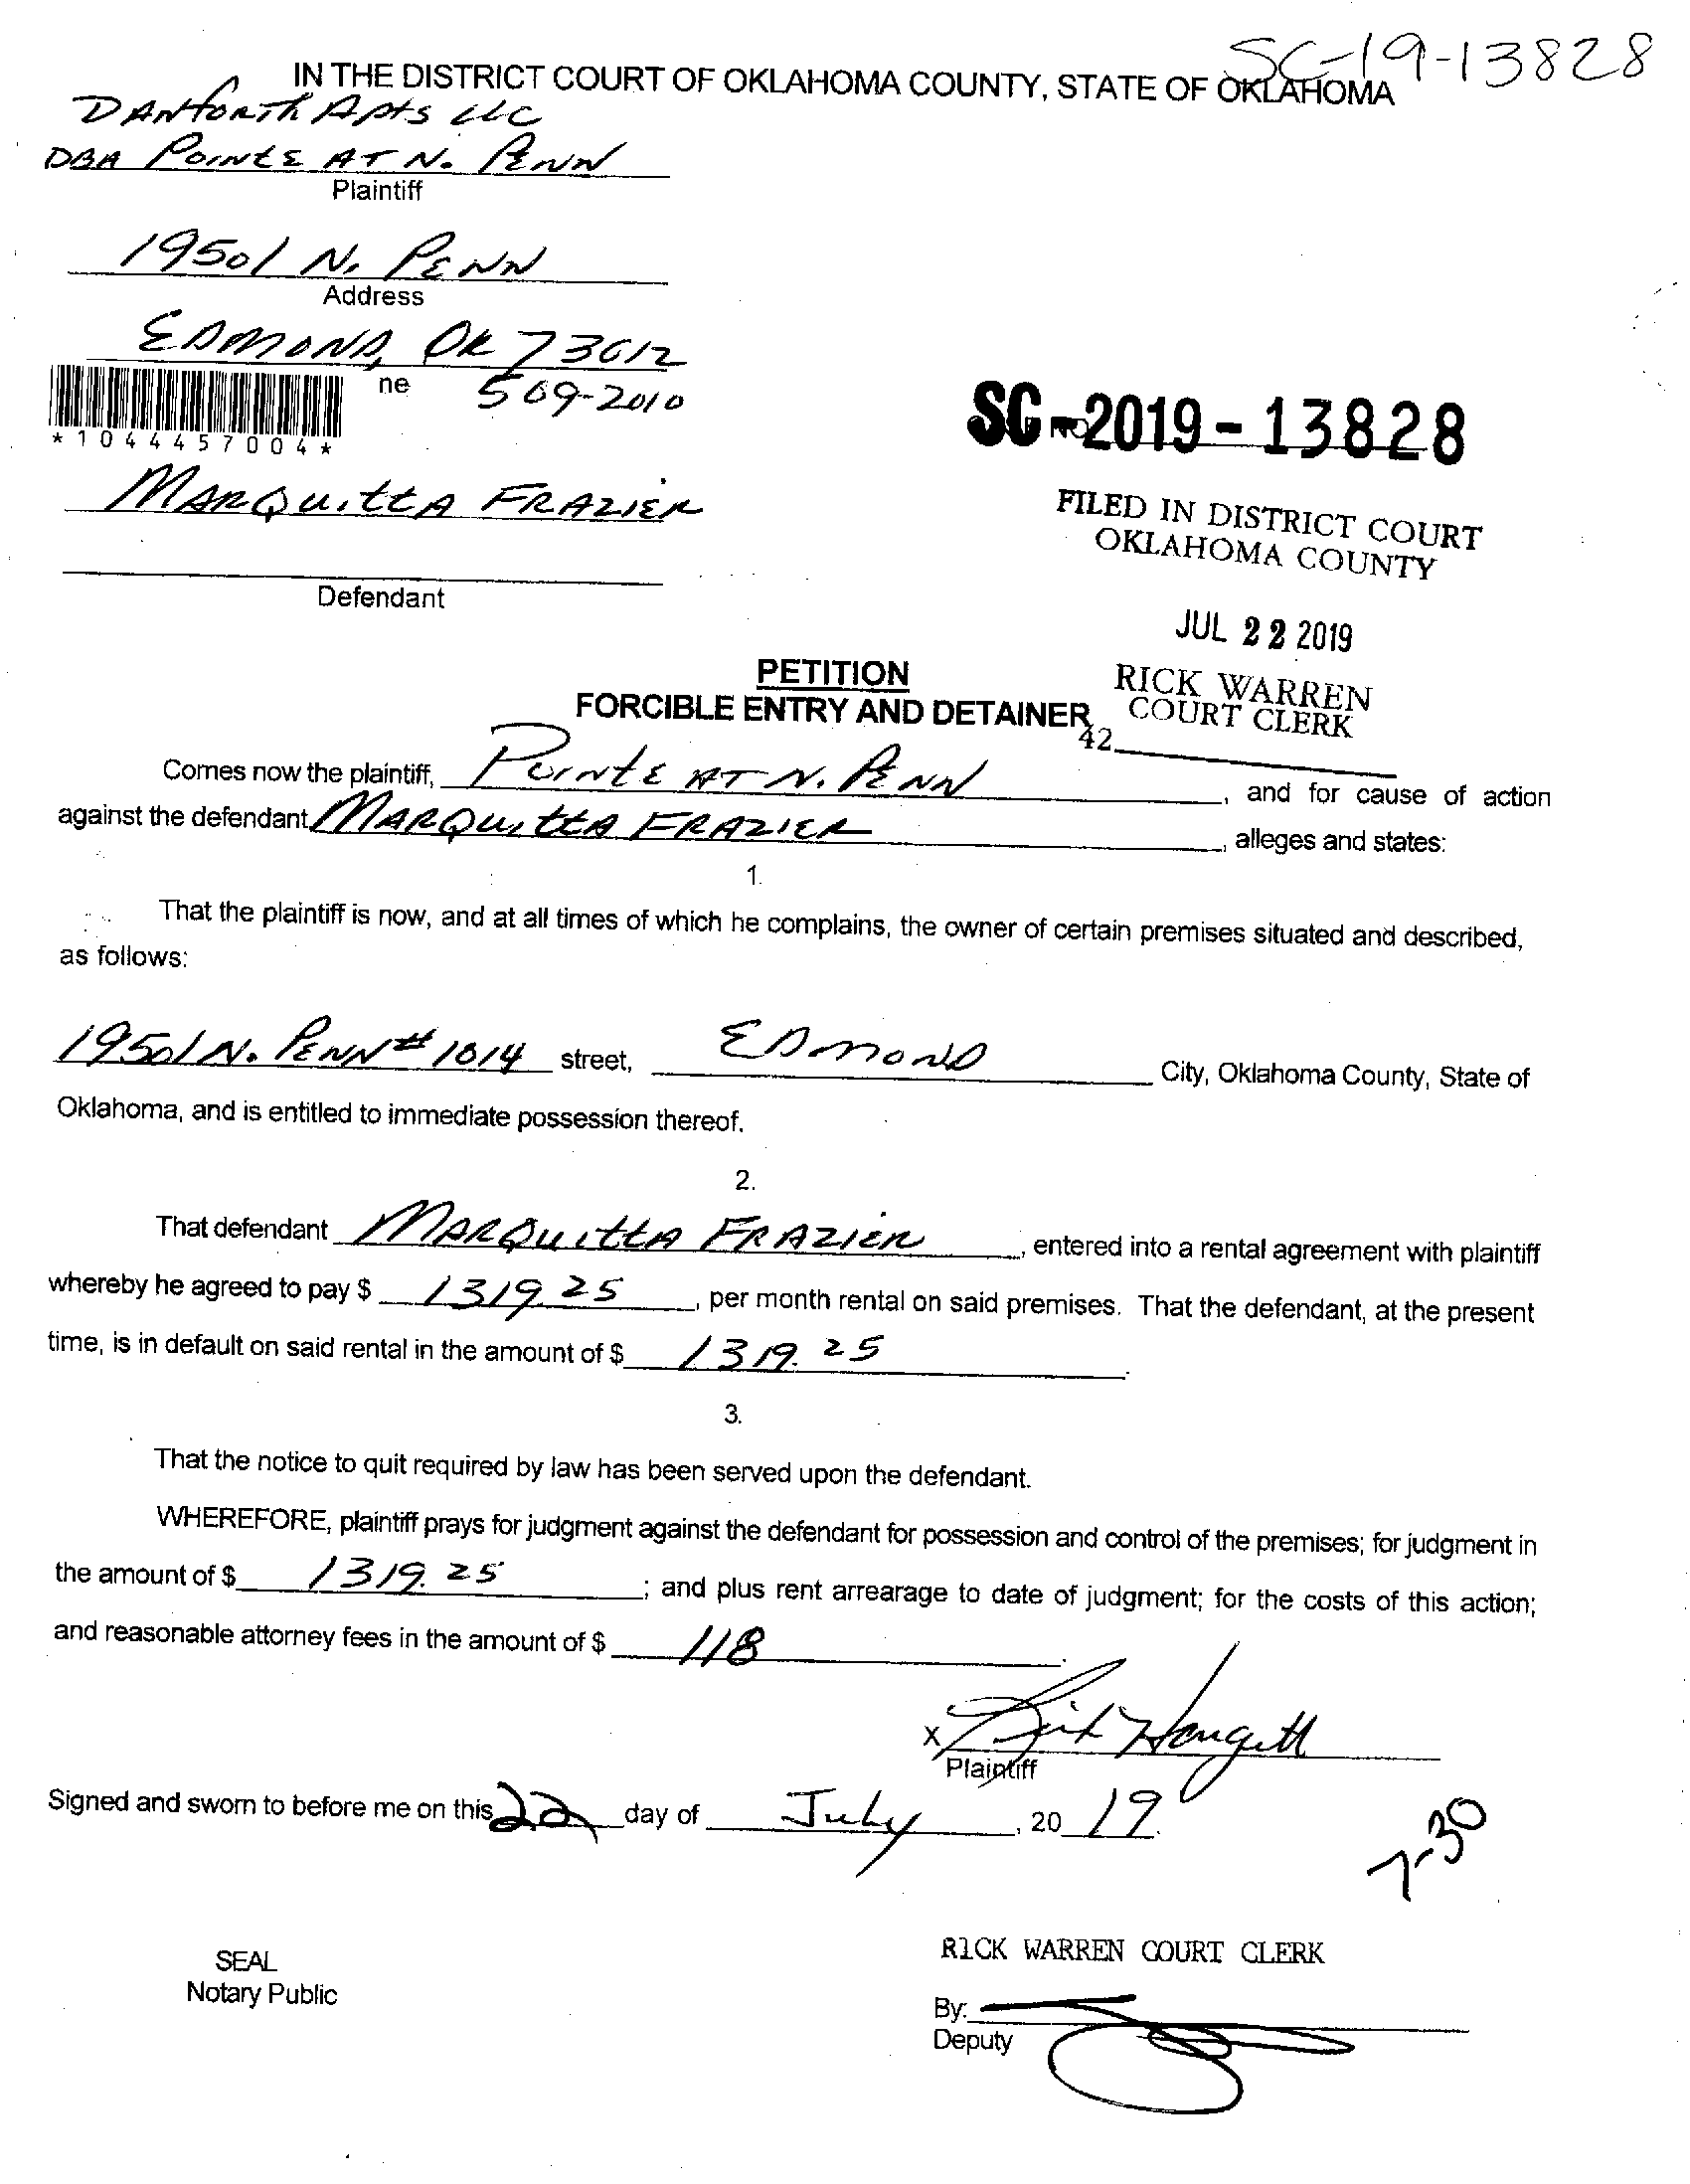 SC-19-13828
IN THE DISTRICT COURT OF OKLAHOMA COUNTY, STATE OF OKLAHOMA
DANFORTH APTS LLC
DBA POINTE AT N. PENN
Plaintiff
19501 N. PENN
Address
EDMOND, OK 73012
ne 569-2010
*1044457004*
SC-2019-13828
NO.
MARQUITTA FRAZIER
FILED IN DISTRICT COURT
OKLAHOMA COUNTY
Defendant
JUL 22 2019
PETITION
RICK WARREN
FORCIBLE ENTRY AND DETAINER
COURT CLERK
42
Comes now the plaintiff, POINTE AT N. PENN, and for cause of action
against the defendant MARQUITTA FRAZIER, alleges and states:
1.
That the plaintiff is now, and at all times of which he complains, the owner of certain premises situated and described,
as follows:
19501 N. PENN # 1014 street, EDMOND City, Oklahoma County, State of
Oklahoma, and is entitled to immediate possession thereof.
2.
That defendant MARQUITTA FRAZIER, entered into a rental agreement with plaintiff
whereby he agreed to pay $ 1319.25, per month rental on said premises. That the defendant, at the present
time, is in default on said rental in the amount of $ 1319.25.
3.
That the notice to quit required by law has been served upon the defendant.
WHEREFORE, plaintiff prays for judgment against the defendant for possession and control of the premises; for judgment in
the amount of $ 1319.25; and plus rent arrearage to date of judgment; for the costs of this action;
and reasonable attorney fees in the amount of $ 118.
X
Plaintiff
Signed and sworn to before me on this 22 day of July, 2019.
7-30
RICK WARREN COURT CLERK
SEAL
Notary Public
By:
Deputy